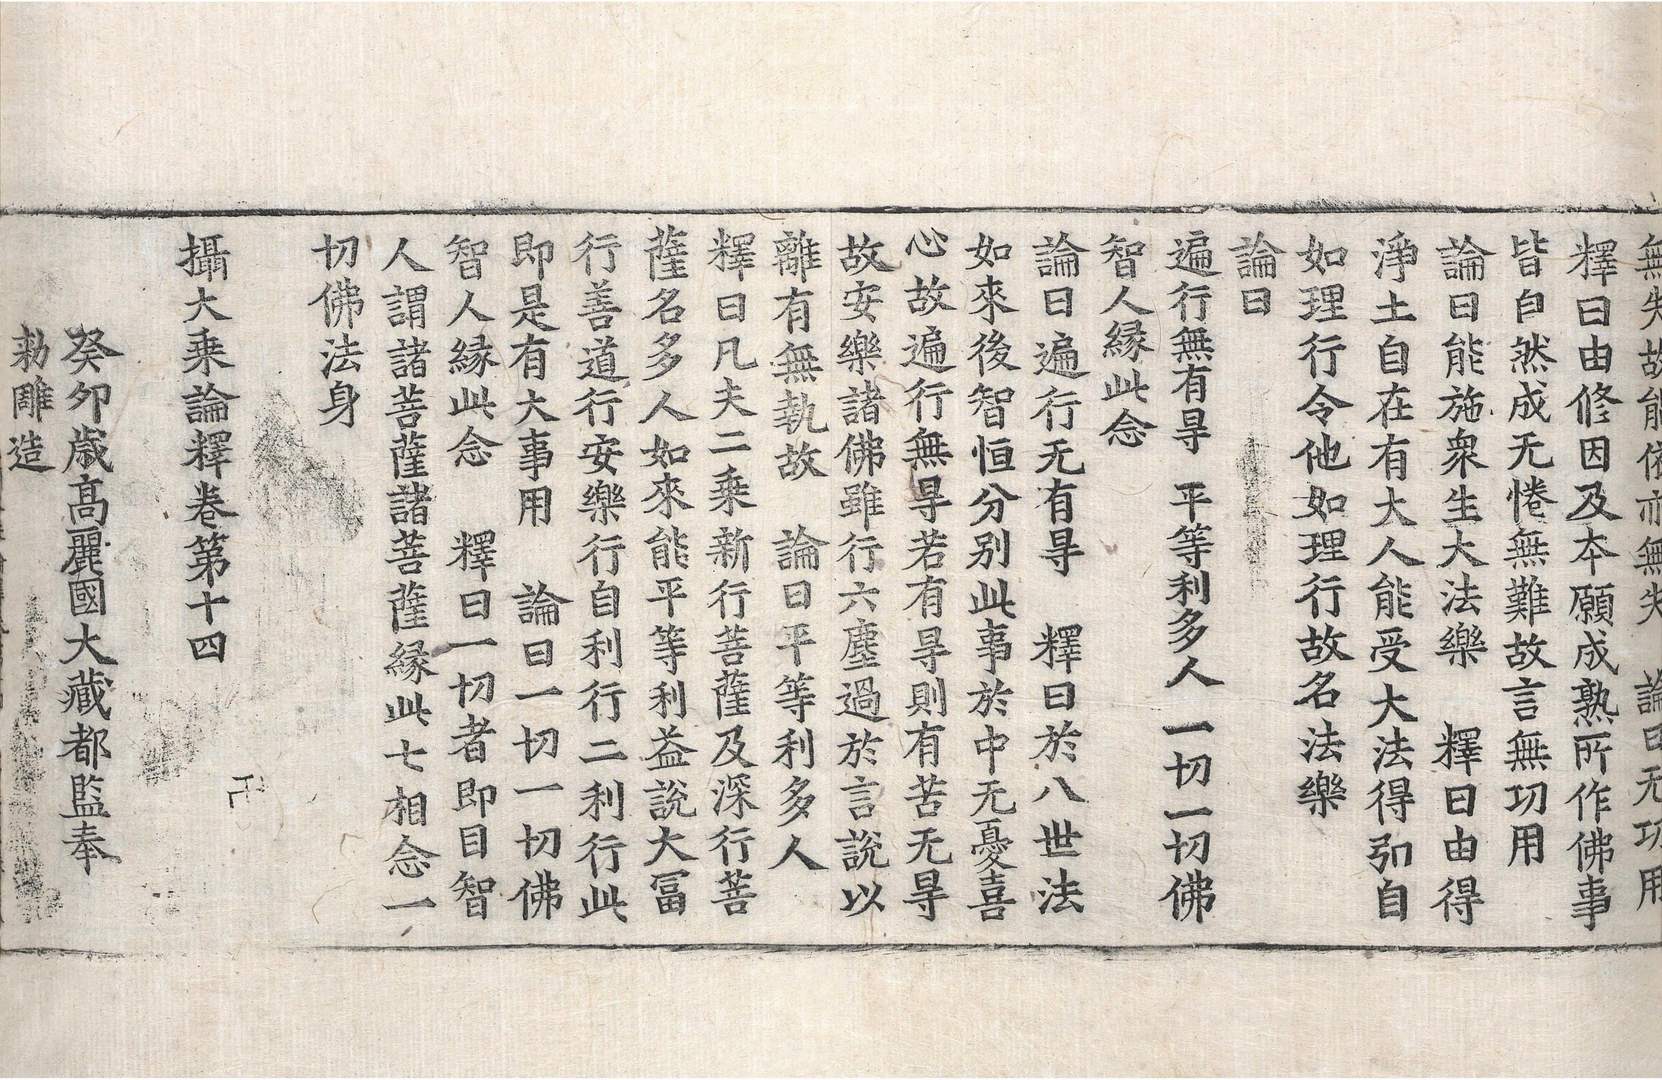 無失故能依亦無失　論曰无功用
釋曰由修因及本願成熟所作佛事
皆自然成无惓無難故言無功用
論曰能施衆生大法樂　釋曰由得
淨土自在有大人能受大法得引自
如理行令他如理行故名法樂
論曰
遍行無有㝵　平等利多人　一切一切佛
智人縁此念
論曰遍行无有㝵　釋曰於八世法
如來後智恒分別此事於中无憂喜
心故遍行無㝵若有㝵則有苦无㝵
故安樂諸佛雖行六塵過於言說以
離有無執故　論曰平等利多人
釋曰凡夫二乘新行菩薩及深行菩
薩名多人如來能平等利益說大冨
行善道行安樂行自利行二利行此
即是有大事用　論曰一切一切佛
智人縁此念　釋曰一切者即目智
人謂諸菩薩諸菩薩縁此七相念一
切佛法身
攝大乗論釋卷第十四
癸卯歳高麗國大藏都監奉
勑雕造